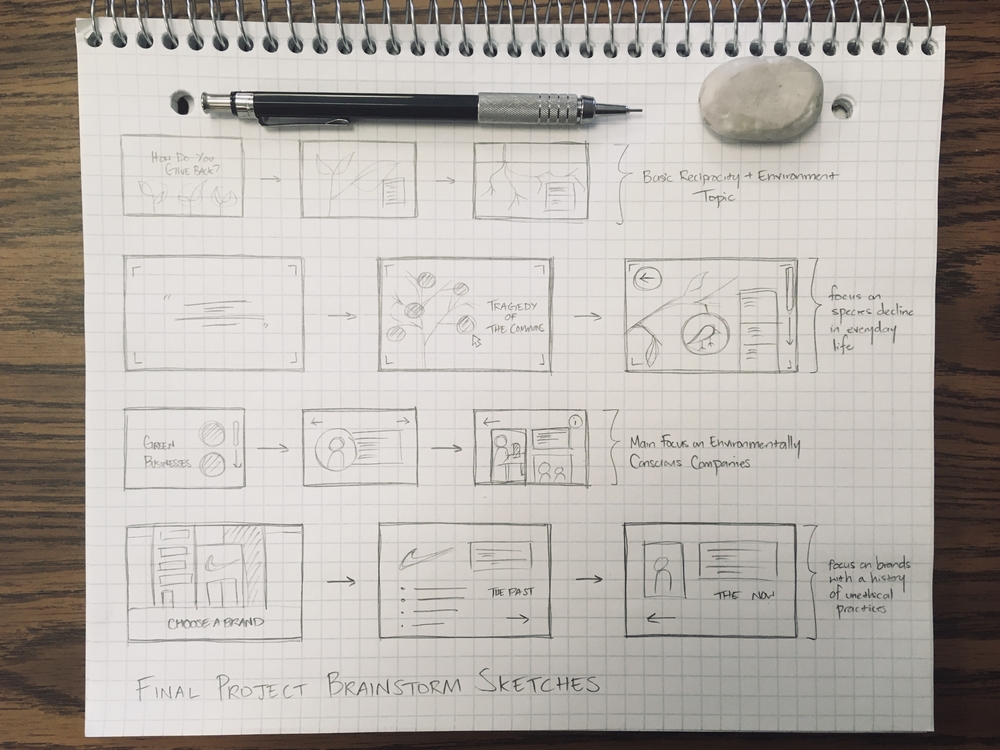 How Do You
Give Back?
Basic Reciprocity + Environment
Topic
TRAGEDY
OF
THE COMMONS
focus on
species decline
in everyday
life
GREEN
BUSINESSES
Main Focus on Environmentally
Conscious Companies
CHOOSE A BRAND
THE PAST
THE NOW
focus on brands
with a history
of unethical
practices
FINAL PROJECT BRAINSTORM SKETCHES